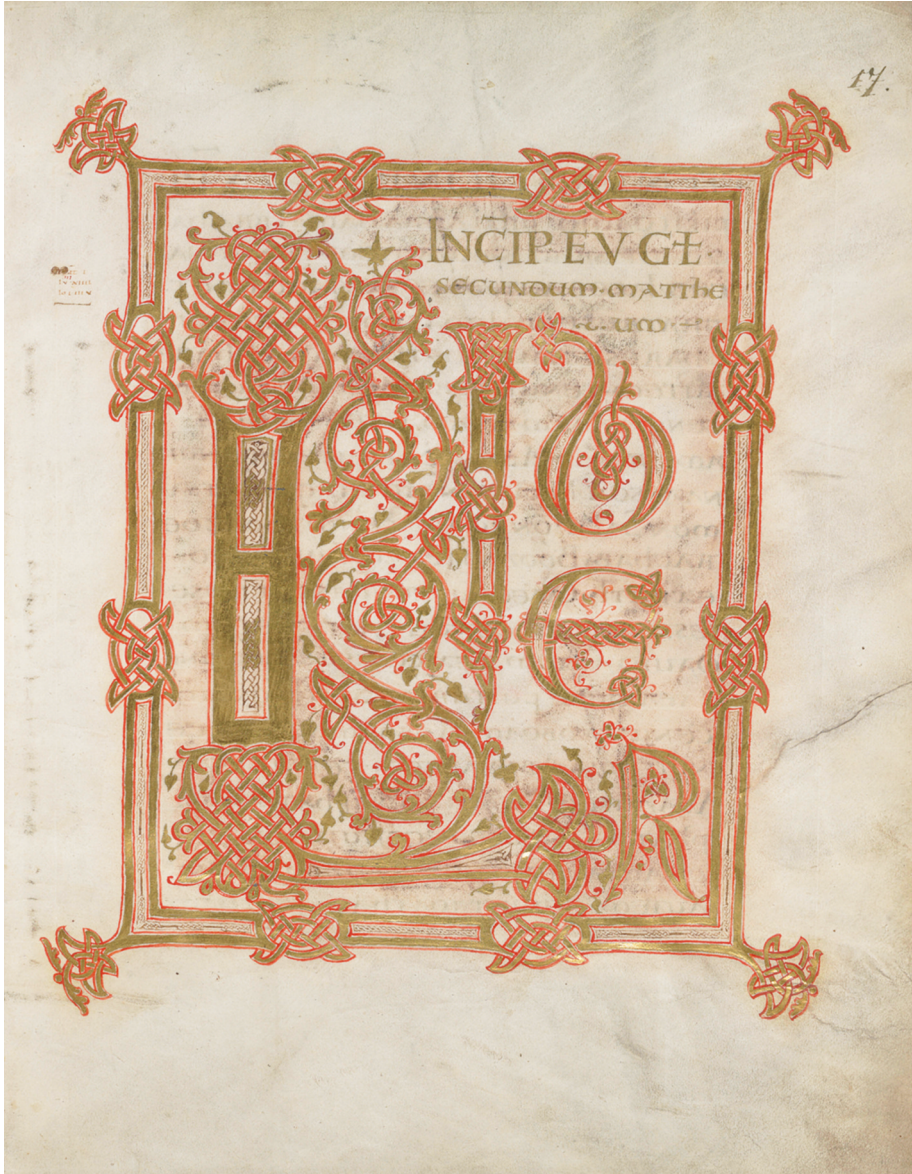 17.
INC̄IP EVGŁ
SECUNDUM·MATThE
UM
LIBER